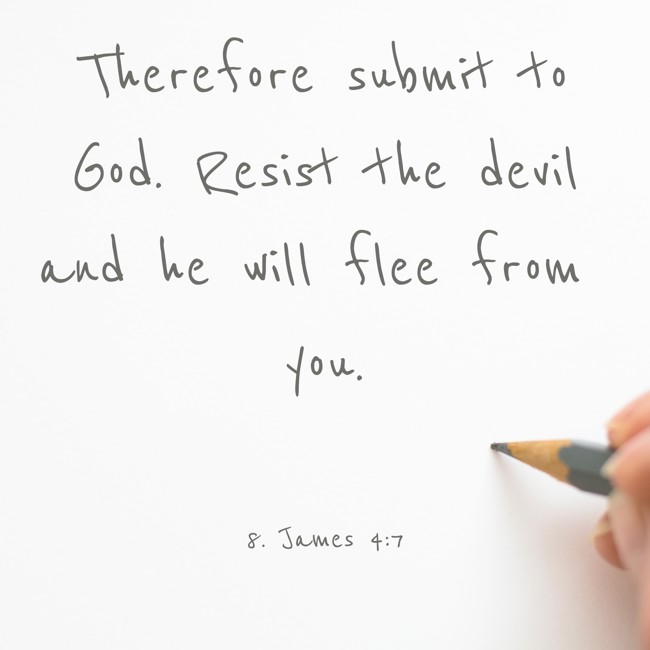 Therefore submit to
God. Resist the devil
and he will flee from
you.
8. James 4:7